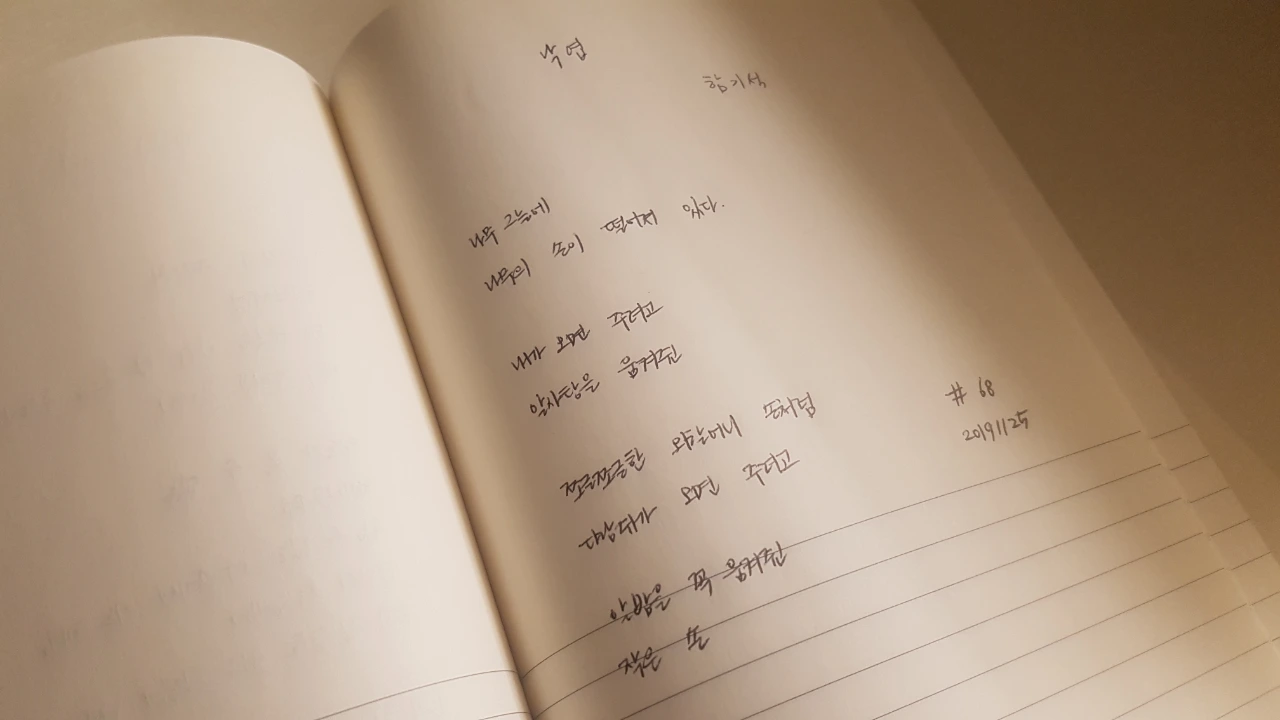 낙엽
함기석
나무 그늘에
나무의 손이 떨어져 있다.
내가 오면 주려고
알사탕을 움켜쥔
쪼글쪼글한 외할머니 손처럼
다람쥐가 오면 주려고
알밤을 꼭 움켜쥔
작은 손
# 68
20191125